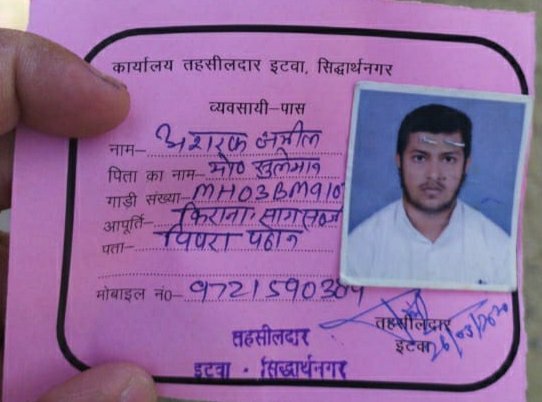 कार्यालय तहसीलदार इटवा, सिद्धार्थनगर
व्यवसायी-पास
नाम- अशरफ जमील
पिता का नाम- मो० सुलेमान
गाड़ी संख्या- MH03BM910
आपूर्ति- किराना साग सब्जी
पता- पिपरा पठान
मोबाइल नं०- 9721590384
तहसीलदार
इटवा
26/03/2020
तहसीलदार
इटवा - सिद्धार्थनगर